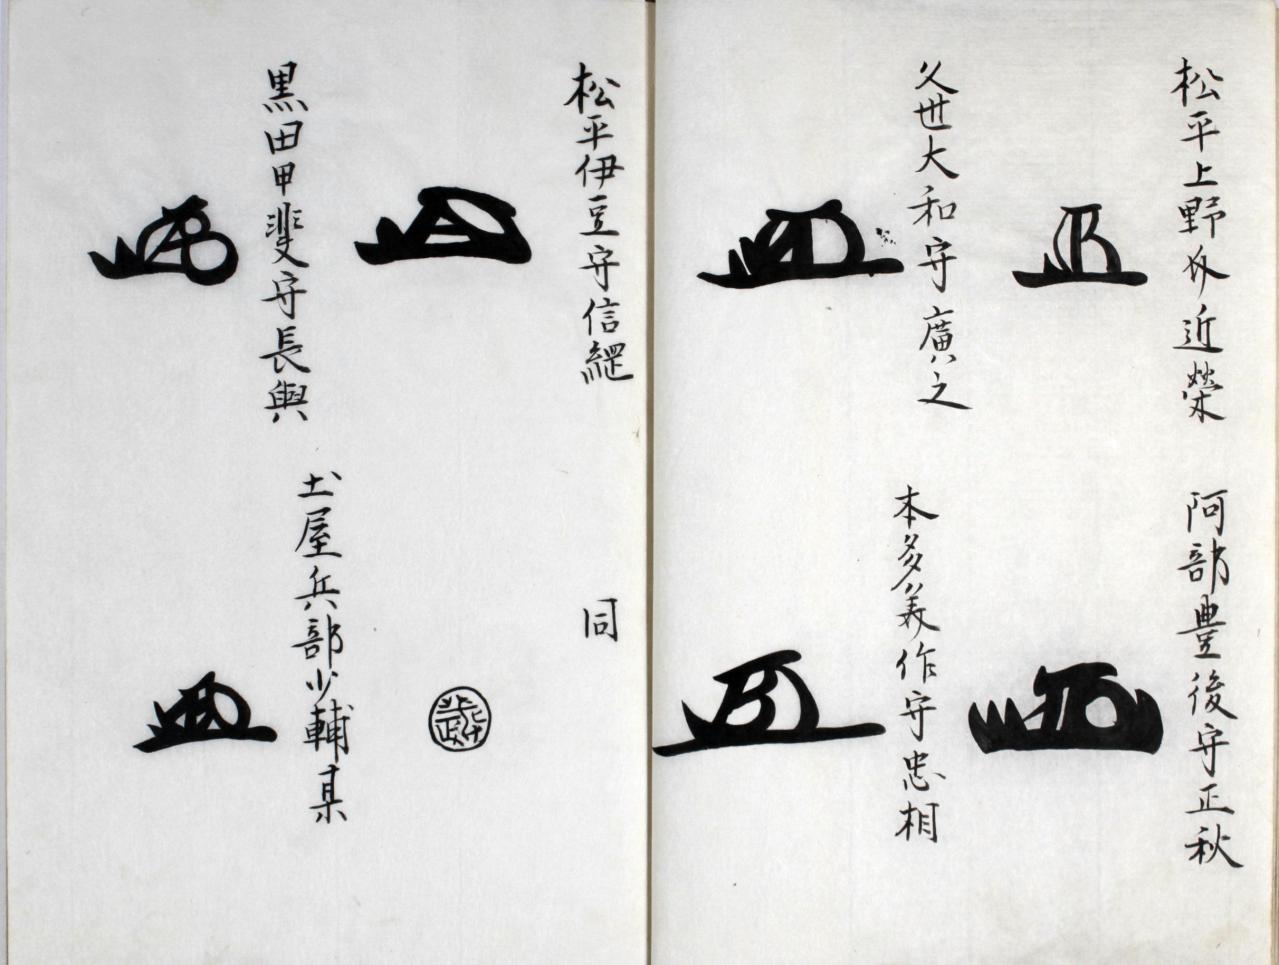 松平上野介近榮
阿部豊後守正秋
久世大和守廣之
本多美作守忠相
松平伊豆守信綱
同
黒田甲斐守長興
土屋兵部少輔某